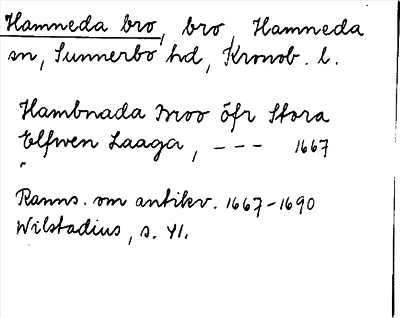 Hamneda bro, bro, Hamneda
sn, Sunnerbo hd, Kronob. l.
Hambnada Broo öfr Stora
Elfwen Laaga, --- 1667
Ranns. om antikv. 1667-1690
Wilstadius, s. 41.